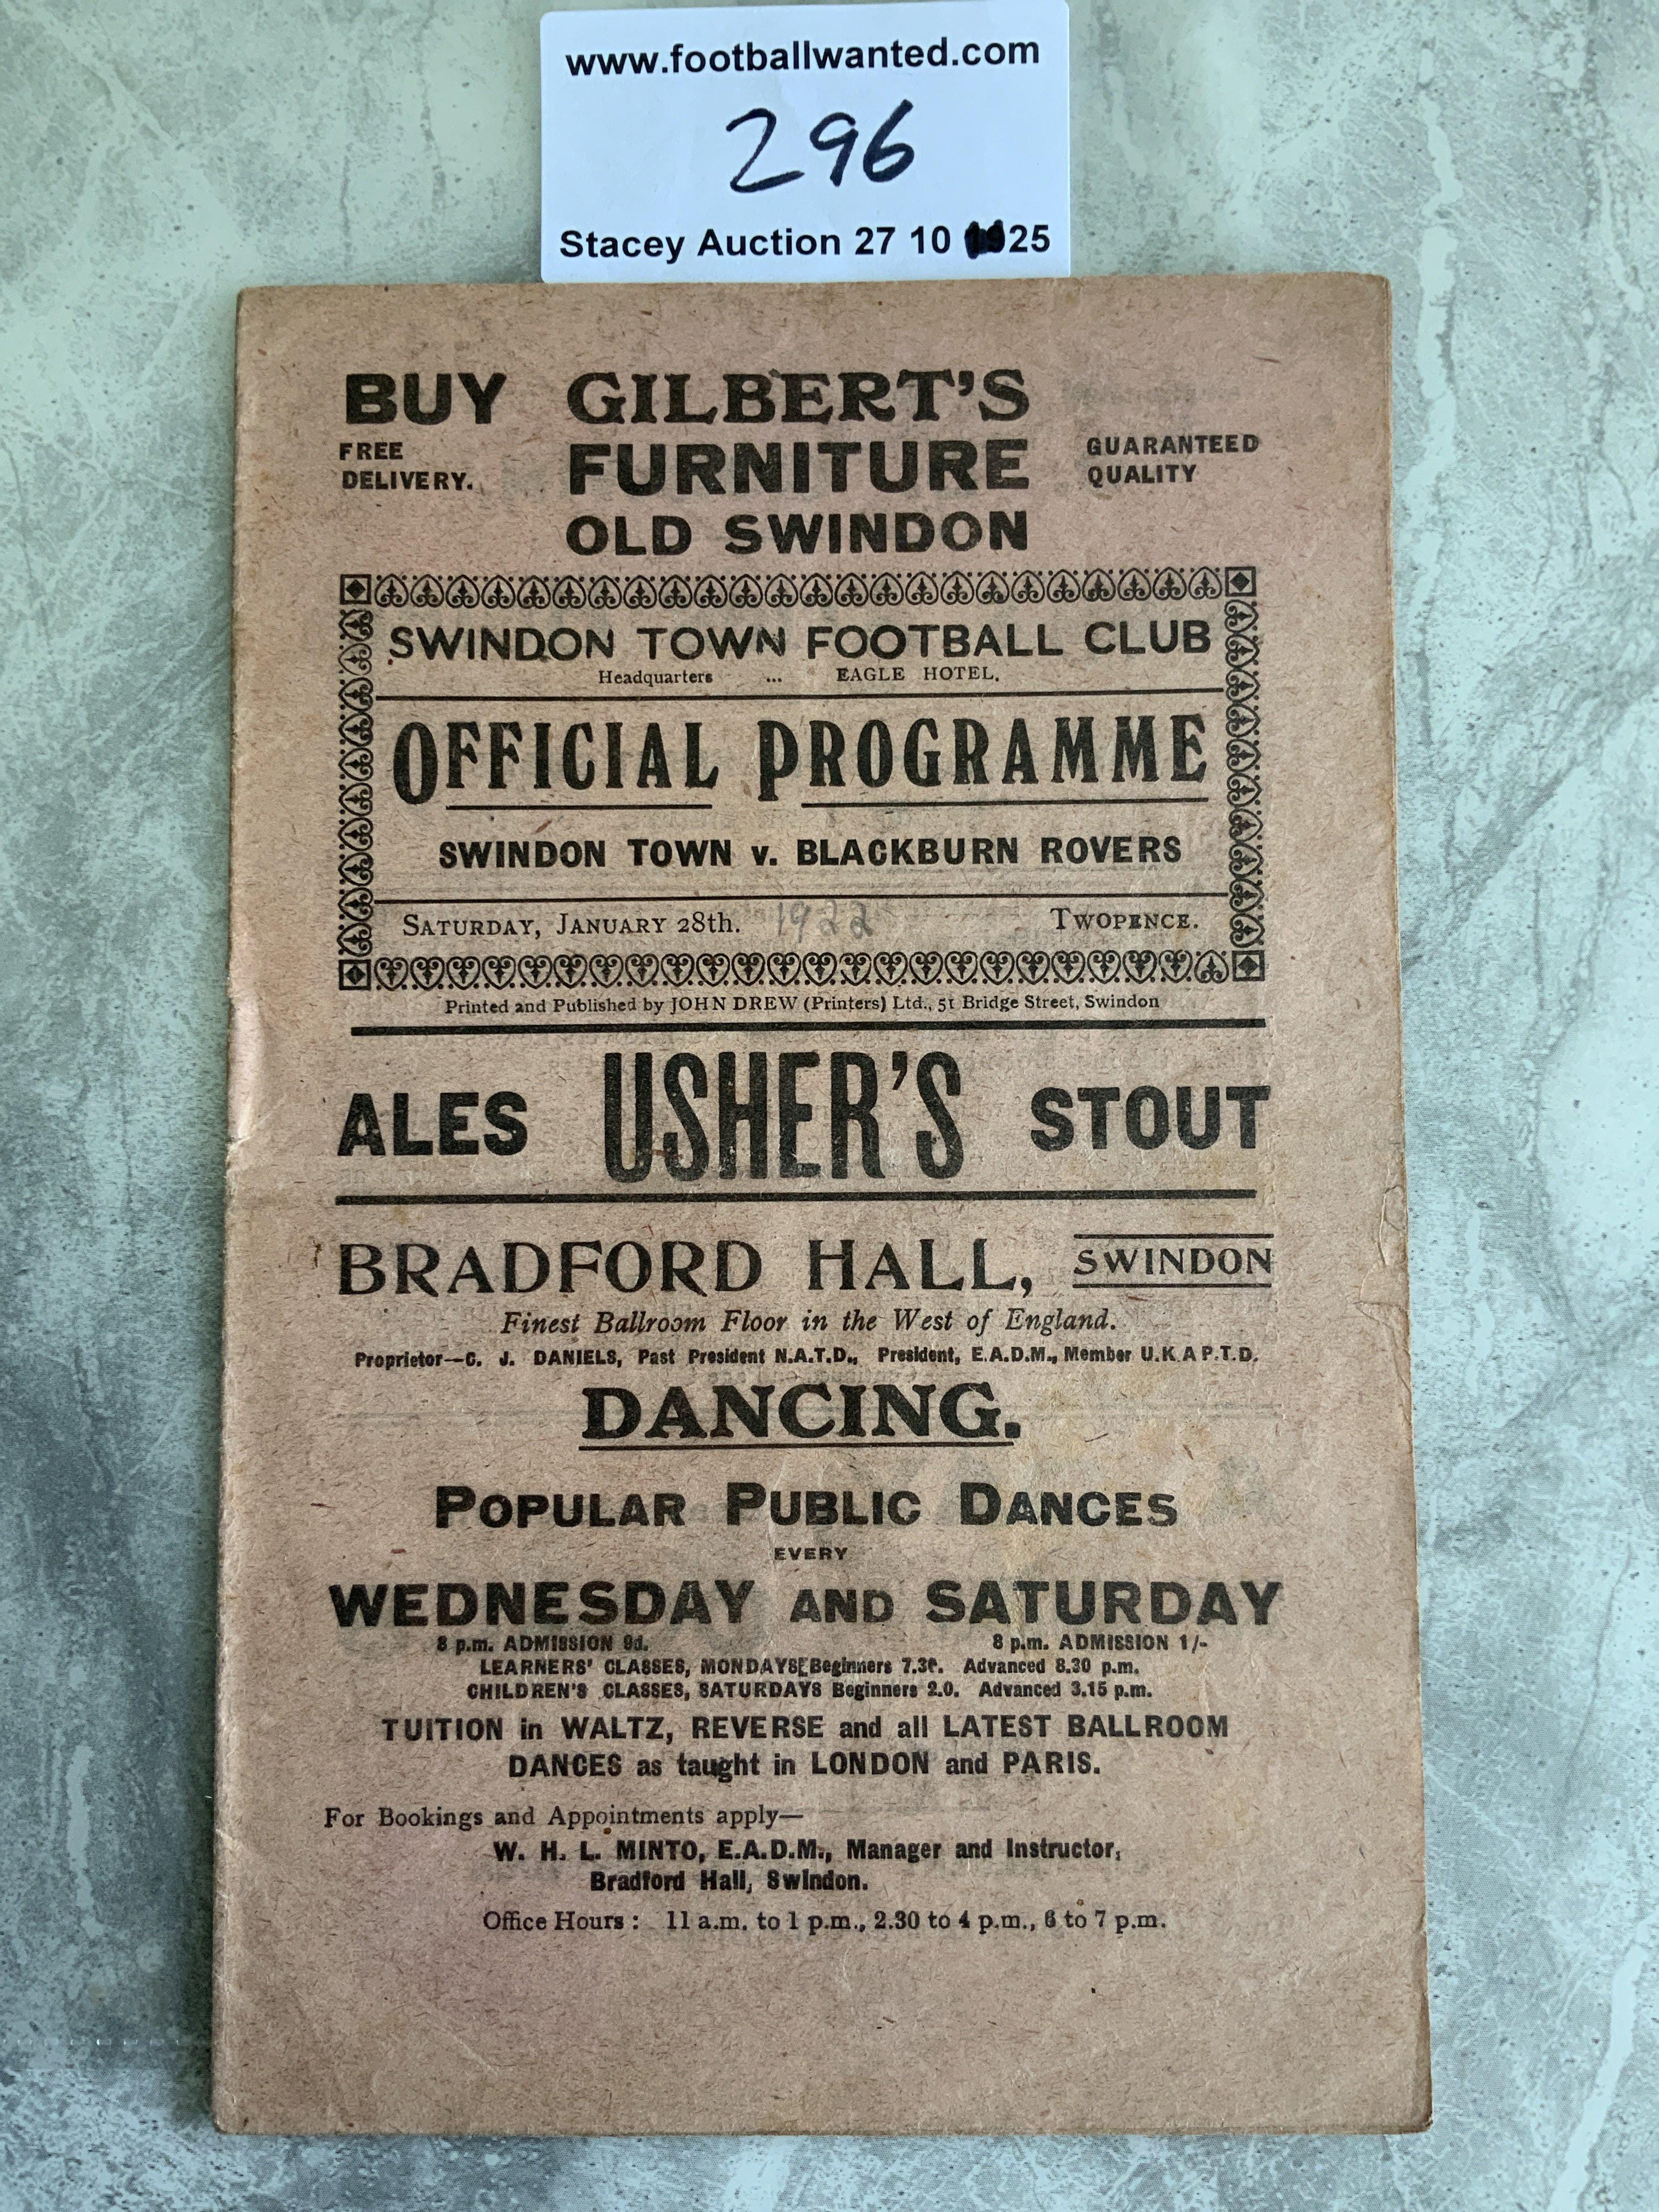 www.footballwanted.com
296
Stacey Auction 27 10 25
BUY GILBERT'S
FREE DELIVERY. FURNITURE GUARANTEED QUALITY
OLD SWINDON
SWINDON TOWN FOOTBALL CLUB
Headquarters ... EAGLE HOTEL.
OFFICIAL PROGRAMME
SWINDON TOWN v. BLACKBURN ROVERS
SATURDAY, JANUARY 28th. 1922 TWOPENCE.
Printed and Published by JOHN DREW (Printers) Ltd., 51 Bridge Street, Swindon
ALES USHER'S STOUT
BRADFORD HALL, SWINDON
Finest Ballroom Floor in the West of England.
Proprietor—C. J. DANIELS, Past President N.A.T.D., President, E.A.D.M., Member U.K.A P.T.D.
DANCING.
POPULAR PUBLIC DANCES
EVERY
WEDNESDAY AND SATURDAY
8 p.m. ADMISSION 9d. 8 p.m. ADMISSION 1/-
LEARNERS' CLASSES, MONDAYS[Beginners 7.30. Advanced 8.30 p.m.
CHILDREN'S CLASSES, SATURDAYS Beginners 2.0. Advanced 3.15 p.m.
TUITION in WALTZ, REVERSE and all LATEST BALLROOM
DANCES as taught in LONDON and PARIS.
For Bookings and Appointments apply—
W. H. L. MINTO, E.A.D.M., Manager and Instructor,
Bradford Hall, Swindon.
Office Hours : 11 a.m. to 1 p.m., 2.30 to 4 p.m., 6 to 7 p.m.